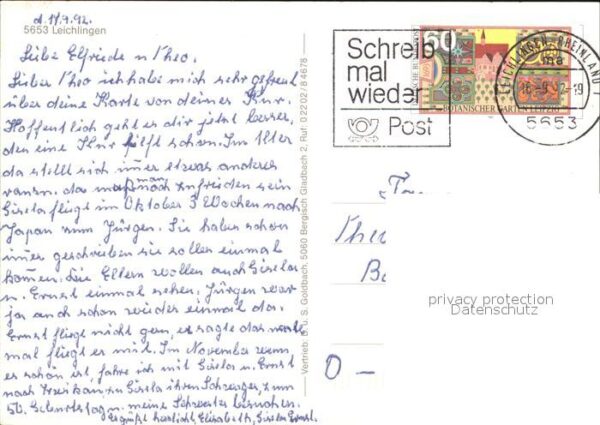 d. 17.9.92.
5653 Leichlingen
Liebe Elfriede u Theo.
Lieber Theo ich habe mich sehr gefreut
über deine Karte von deiner Kur.
Hoffentlich geht es dir jetzt besser,
den eine Kur hilft schon. Im Alter
da stellt sich imer etwas anderes
da muß man noch zufrieden sein
Gisela fliegt im Oktober 3 Wochen nach
Japan zum Jürgen. Sie haben schon
imer geschrieben sie sollen einmal
komen. Die Eltern wollen auch Gisela
u. Ernst einmal sehen. Jürgen war
ja auch schon wieder einmal da.
Ernst fliegt nicht gern, er sagte das
mal fliegt er mit. Im November wenn
es schön ist fahre ich mit Gisela u. Ernst
nach zu Gisela ihren Schwager, zum
50. Geburtstag u. meine Schwester besuchen.
Es grüßt herzlich, Elisabeth, Gisela Ernst.
Vertrieb: B. U. S. Goldbach, 5060 Bergisch Gladbach 2, Ruf: 0 22 02 / 8 46 78
Schreib
mal
wieder
Post
60
DEUTSCHE BUNDESPOST
BOTANISCHER GARTEN LEIPZIG
LEICHLINGEN, RHEINLAND 1
ma
18.-9.92-19
5653
O –
privacy protection
Datenschutz